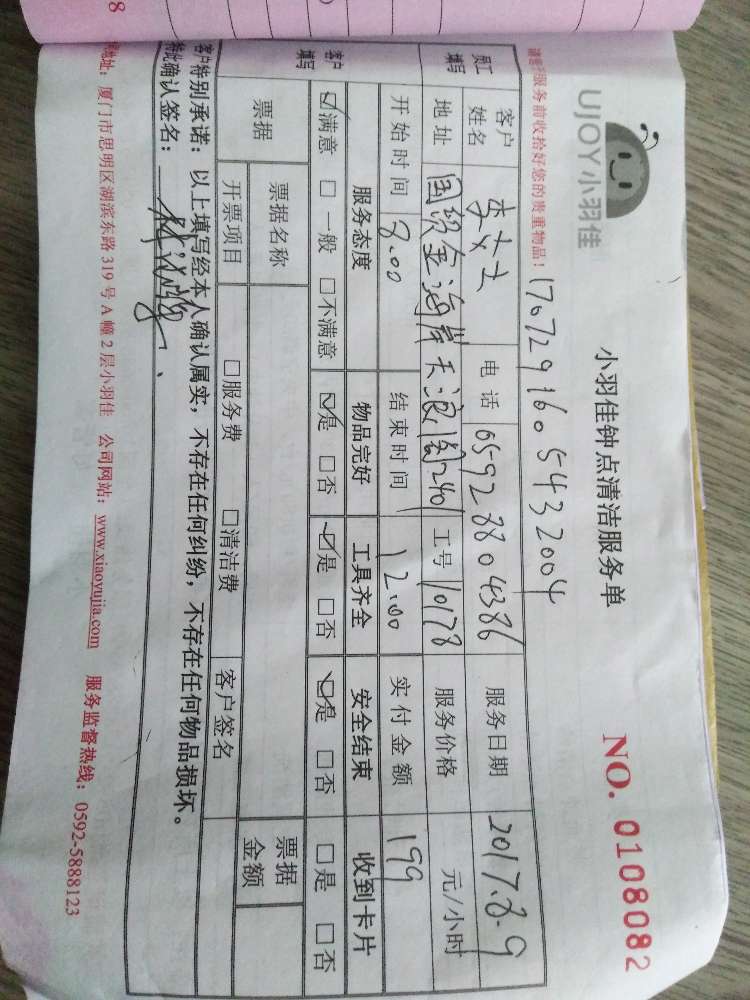 8
UJOY小羽佳
小羽佳钟点清洁服务单
NO. 0108082
请您于服务前收拾好您的贵重物品!
17072916054320004
员工填写
客户姓名
电话 05928804386
服务日期 2017.8.9
地址 国贸金海岸天浪阁2401
工号 10178
服务价格 元/小时
开始时间 8.00
结束时间 12.00
实付金额 199
客户填写
服务态度 物品完好 工具齐全 安全结束 收到卡片
☑满意 □一般 □不满意 ☑是 □否 ☑是 □否 ☑是 □否 □是 □否
票据 票据名称 票据金额
开票项目 □服务费 □清洁费 客户签名
客户特别承诺:以上填写经本人确认属实,不存在任何纠纷,不存在任何物品损坏。
特此确认签名:
地址:厦门市思明区湖滨东路319号A幢2层小羽佳 公司网站:www.xiaoyujia.com 服务监督热线:0592-5888123